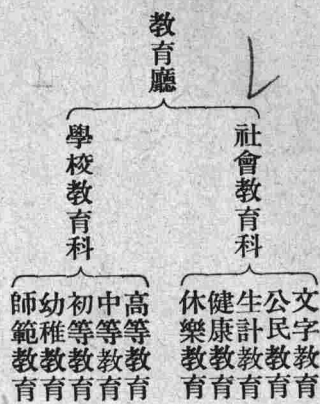 教育廳
社會教育科
文字教育
公民教育
生計教育
健康教育
休樂教育
學校教育科
高等教育
中等教育
初等教育
幼稚教育
師範教育